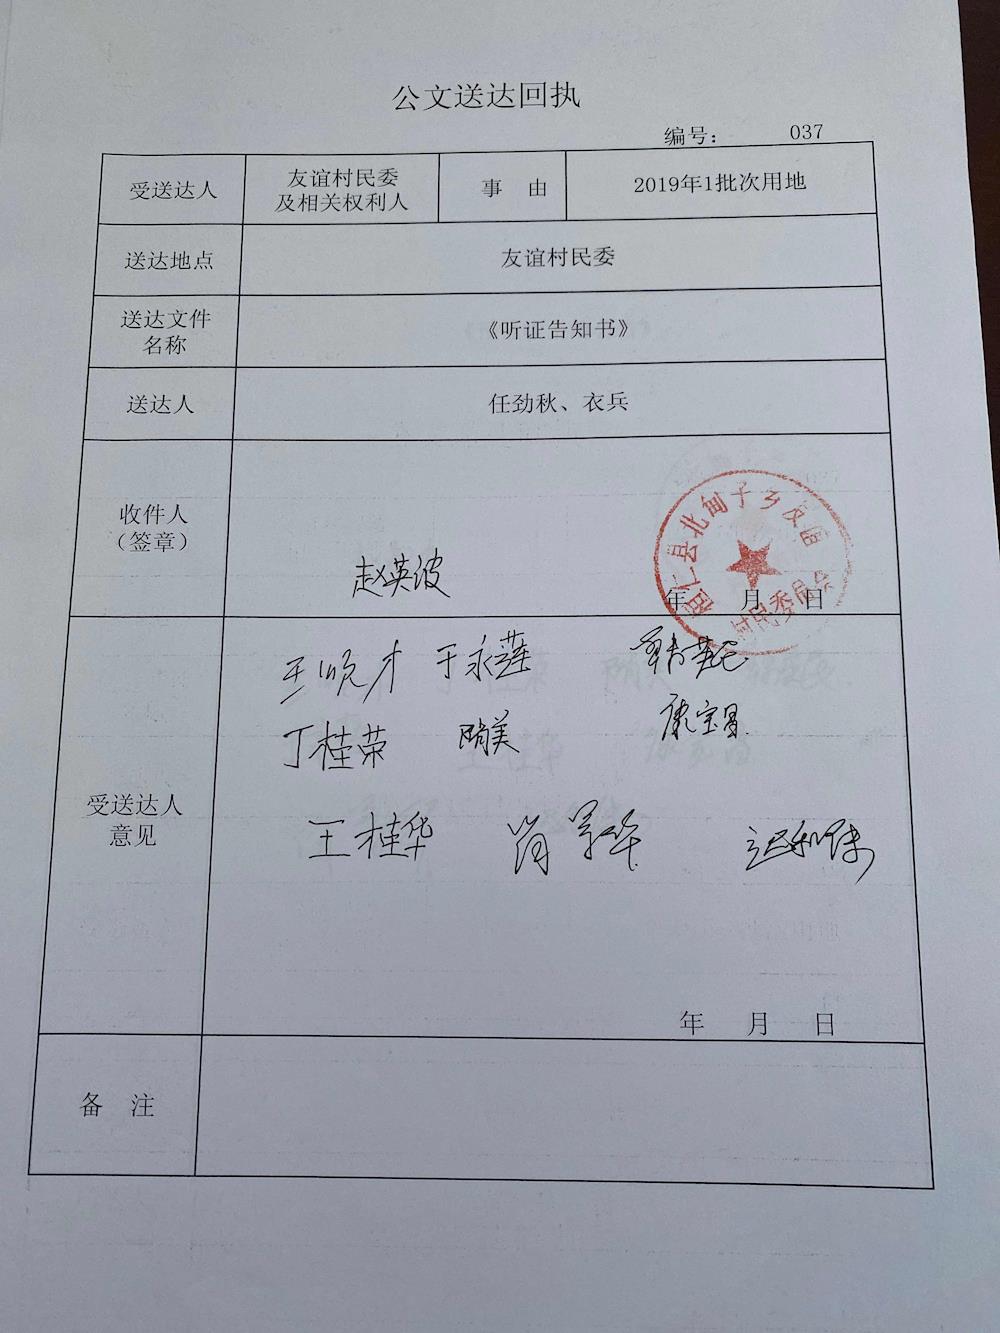 公文送达回执
编号： 037
受送达人
友谊村民委
及相关权利人
事 由
2019年1批次用地
送达地点
友谊村民委
送达文件
名称
《听证告知书》
送达人
任劲秋、衣兵
收件人
（签章）
赵英波
桓仁县北甸子乡友谊
村民委员会
年 月 日
受送达人
意见
于永莲
丁桂荣 隋美 康宝昌
王桂华
年 月 日
备 注